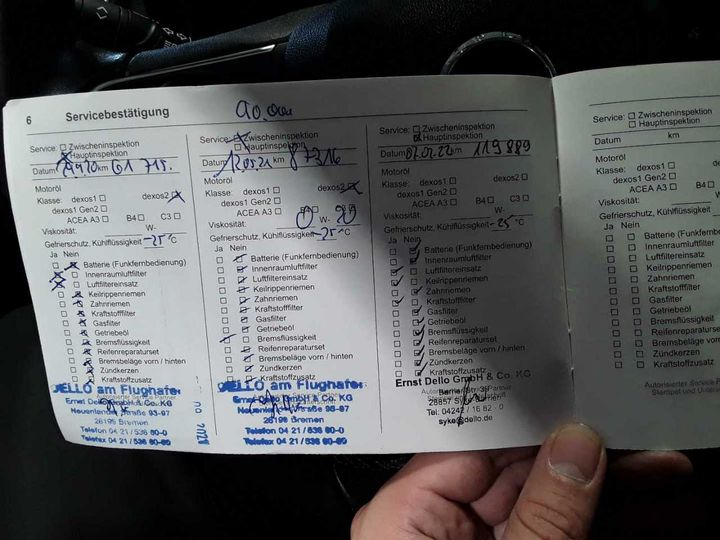 6 Servicebestätigung 90.000
Service: Zwischeninspektion
Hauptinspektion
Datum km 61 715.
Motoröl
Klasse: dexos1 dexos2
dexos1 Gen2
ACEA A3 B4 C3
Viskosität: W-
Gefrierschutz, Kühlflüssigkeit -25 °C
Ja Nein
Batterie (Funkfernbedienung)
Innenraumluftfilter
Luftfiltereinsatz
Keilrippenriemen
Zahnriemen
Kraftstofffilter
Gasfilter
Getriebeöl
Bremsflüssigkeit
Reifenreparaturset
Bremsbeläge vorn / hinten
Zündkerzen
Kraftstoffzusatz
DELLO am Flughafen
Ernst Dello GmbH & Co. KG
Neuenlander Straße 93-97
28199 Bremen
Telefon 04 21 / 536 80-0
Telefax 04 21 / 536 80-60
Service: Zwischeninspektion
Hauptinspektion
Datum 12.05.21 km 87216
Motoröl
Klasse: dexos1 dexos2
dexos1 Gen2
ACEA A3 B4 C3
Viskosität: 0 W- 20
Gefrierschutz, Kühlflüssigkeit -25 °C
Ja Nein
Batterie (Funkfernbedienung)
Innenraumluftfilter
Luftfiltereinsatz
Keilrippenriemen
Zahnriemen
Kraftstofffilter
Gasfilter
Getriebeöl
Bremsflüssigkeit
Reifenreparaturset
Bremsbeläge vorn / hinten
Zündkerzen
Kraftstoffzusatz
DELLO am Flughafen
Ernst Dello GmbH & Co. KG
Neuenlander Straße 93-97
28199 Bremen
Telefon 04 21 / 536 80-0
Telefax 04 21 / 536 80-60
Service: Zwischeninspektion
Hauptinspektion
Datum 02.22 km 119 889
Motoröl
Klasse: dexos1 dexos2
dexos1 Gen2
ACEA A3 B4 C3
Viskosität: W-
Gefrierschutz, Kühlflüssigkeit -25 °C
Ja Nein
Batterie (Funkfernbedienung)
Innenraumluftfilter
Luftfiltereinsatz
Keilrippenriemen
Zahnriemen
Kraftstofffilter
Gasfilter
Getriebeöl
Bremsflüssigkeit
Reifenreparaturset
Bremsbeläge vorn / hinten
Zündkerzen
Kraftstoffzusatz
Ernst Dello GmbH & Co. KG
28857 Syke
Tel. 04242 / 16 82 - 0
syke@dello.de
Service: Zwischeninspektion
Hauptinspektion
Datum km
Motoröl
Klasse: dexos1
dexos1 Gen2
ACEA A3
Viskosität:
Gefrierschutz, Kühlflüssig
Ja Nein
Batterie (Funkf
Innenraumluft
Luftfiltereinsat
Keilrippenriem
Zahnriemen
Kraftstofffilter
Gasfilter
Getriebeöl
Bremsflüssigk
Reifenreparat
Bremsbeläge
Zündkerzen
Kraftstoffzusa
Autorisierter Servic
Stempel und Unters